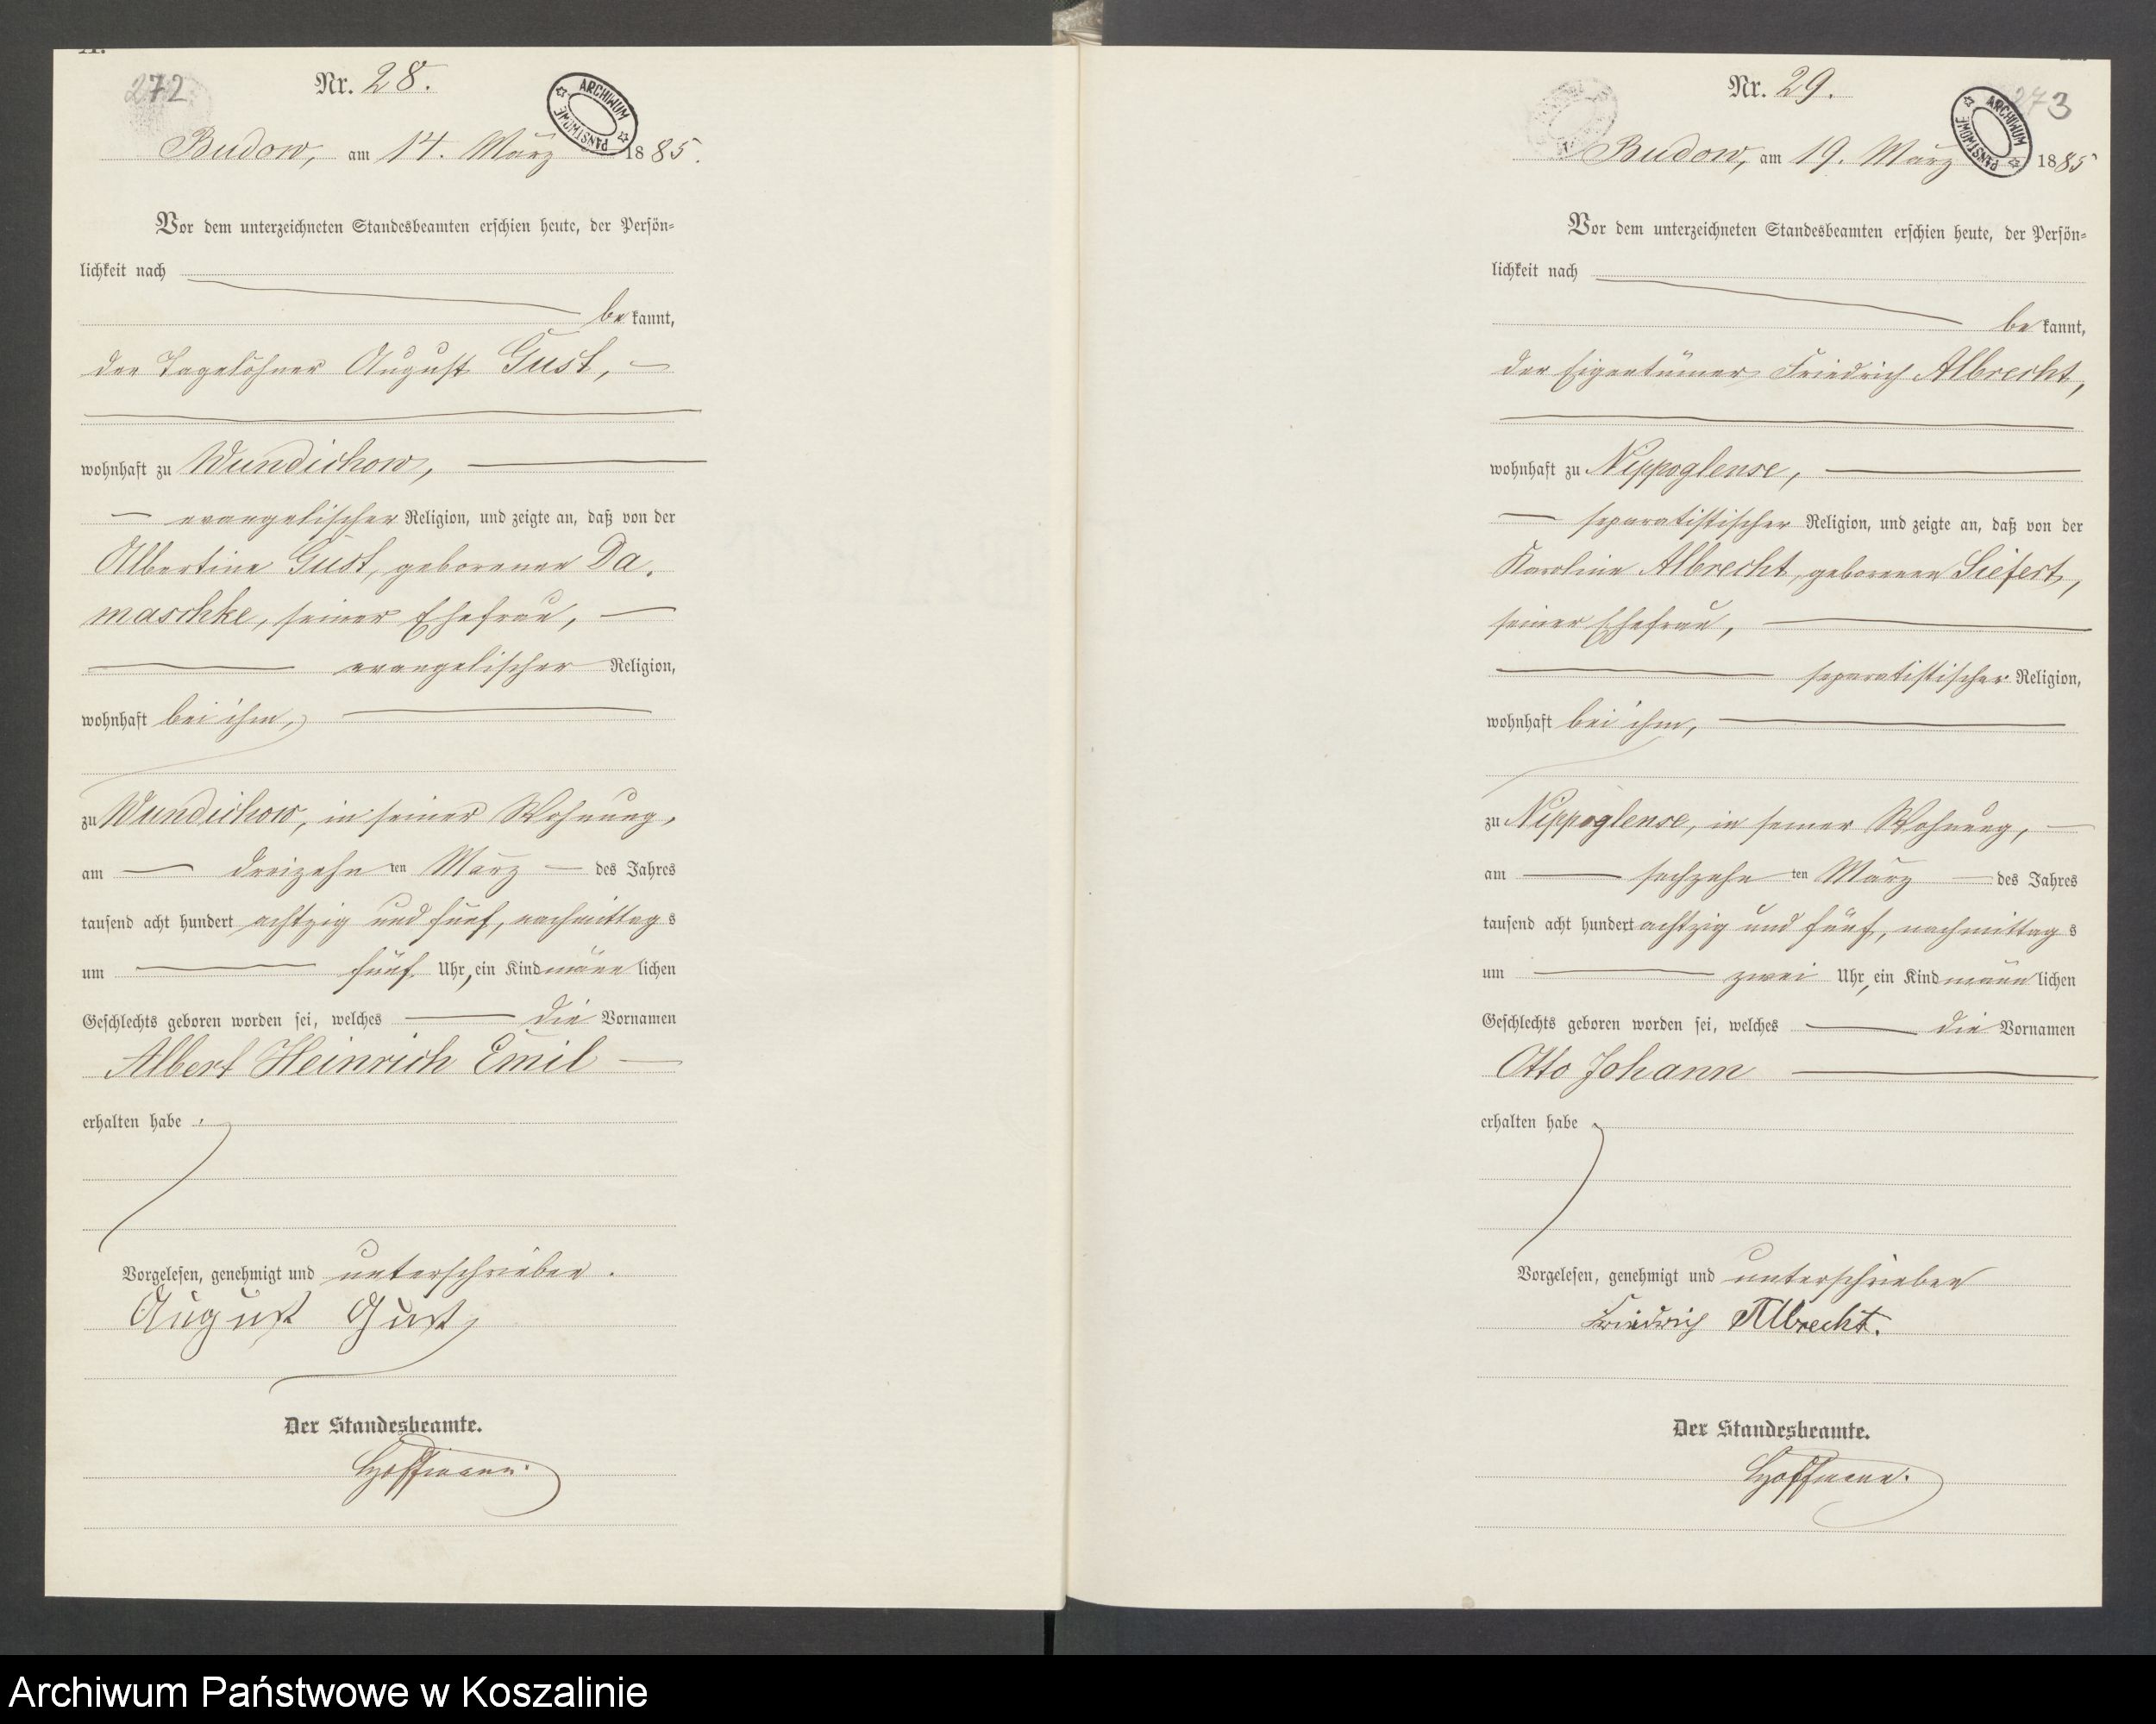 272
Nr. 28.
ARCHIWUM PAŃSTWOWE
Budow, am 14. März 1885.
Vor dem unterzeichneten Standesbeamten erschien heute, der Persön=
lichkeit nach
be kannt,
der Tagelöhner August Gust,
wohnhaft zu Wundichow,
evangelischer Religion, und zeigte an, daß von der
Albertine Gust, geborenen Da-
maschke, seiner Ehefrau,
evangelischer Religion,
wohnhaft bei ihm,
zu Wundichow, in seiner Wohnung,
am dreizehn ten März des Jahres
tausend acht hundert achtzig und fünf, nachmittag s
um fünf Uhr, ein Kind männ lichen
Geschlechts geboren worden sei, welches die Vornamen
Albert Heinrich Emil
erhalten habe.
Vorgelesen, genehmigt und unterschrieben.
August Gust
Der Standesbeamte.
Hoffmann.
273
Nr. 29.
ARCHIWUM PAŃSTWOWE
Budow, am 19. März 1885
Vor dem unterzeichneten Standesbeamten erschien heute, der Persön=
lichkeit nach
be kannt,
der Eigentümer Friedrich Albrecht,
wohnhaft zu Nippoglense,
separatistischer Religion, und zeigte an, daß von der
Karoline Albrecht, geborenen Siefert,
seiner Ehefrau,
separatistischer Religion,
wohnhaft bei ihm,
zu Nippoglense, in seiner Wohnung,
am sechzehn ten März des Jahres
tausend acht hundert achtzig und fünf, nachmittag s
um zwei Uhr, ein Kind männ lichen
Geschlechts geboren worden sei, welches die Vornamen
Otto Johann
erhalten habe
Vorgelesen, genehmigt und unterschrieben
Friedrich Albrecht.
Der Standesbeamte.
Hoffmann.
Archiwum Państwowe w Koszalinie